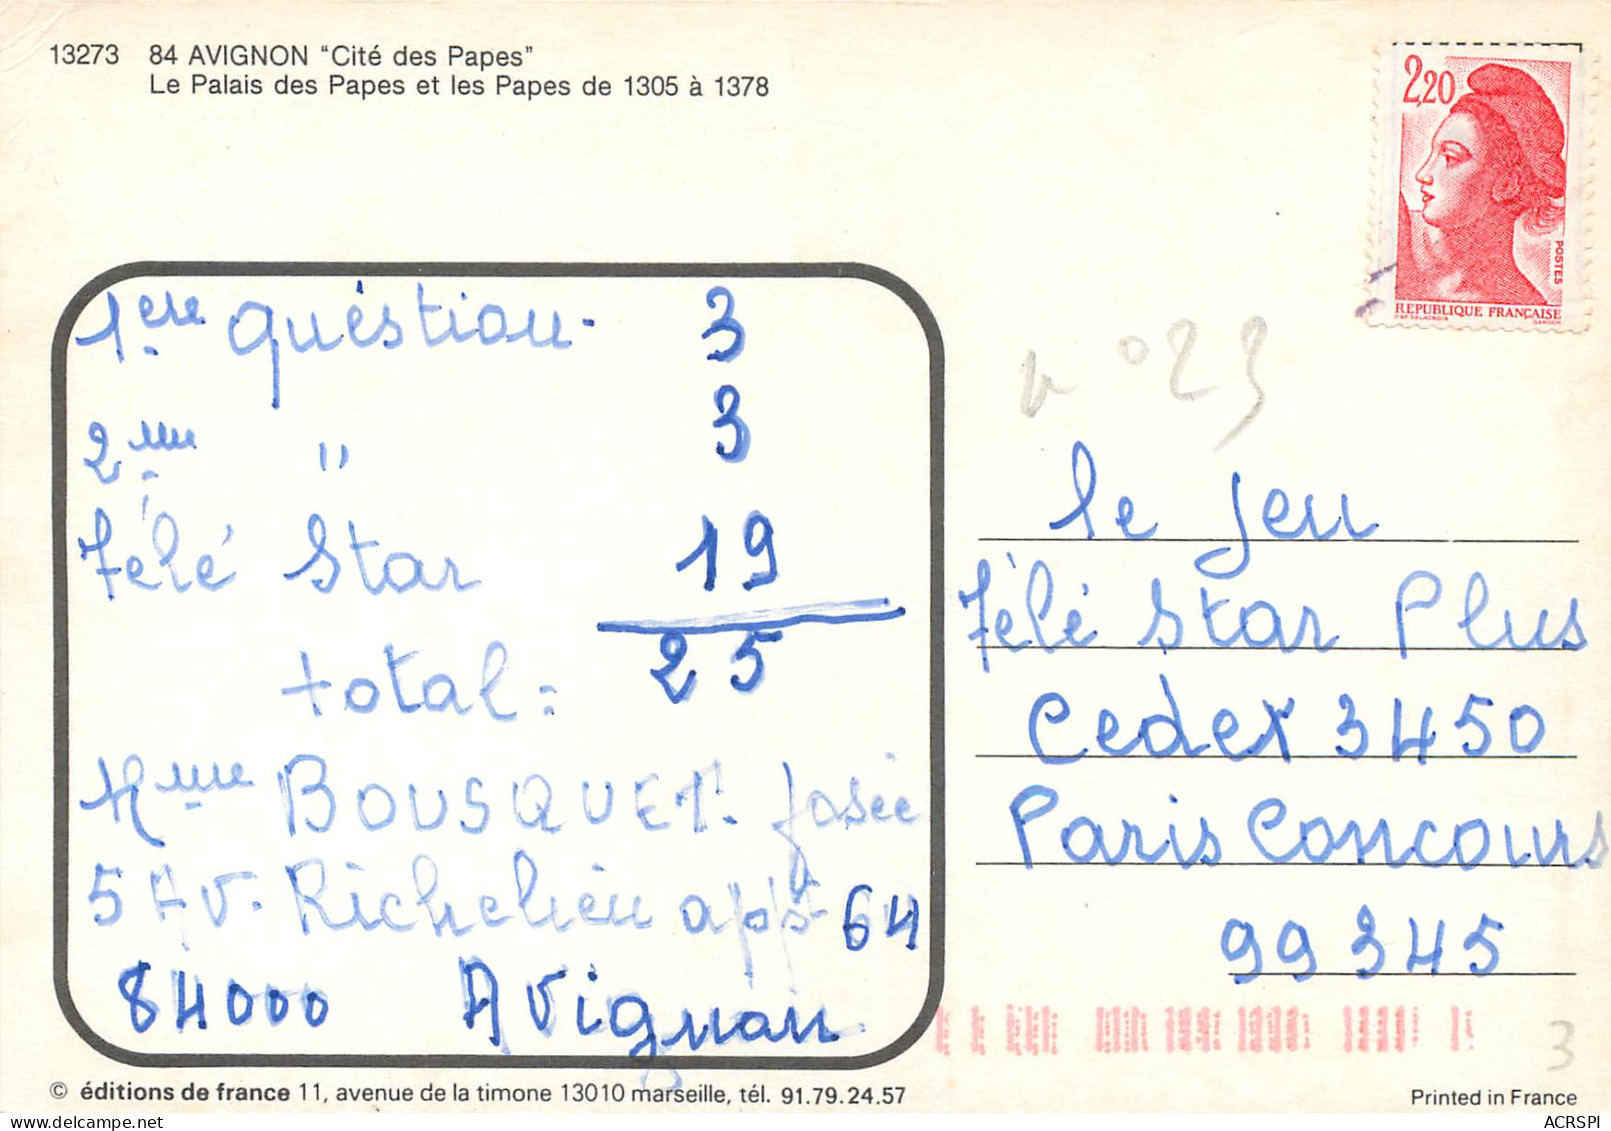 13273 84 AVIGNON "Cité des Papes"
Le Palais des Papes et les Papes de 1305 à 1378
2,20
POSTES
REPUBLIQUE FRANÇAISE
D'AP. DELACROIX GANDON
1ère quéstion - 3
2.ème " 3
Télé Star 19
total : 25
Mme BOUSQUET. Josée
5 AV. Richeliéu appt 64
84000 Avignon
n°23
le jeu
Télé Star Plus
Cedex 3450
Paris Concours
99345
3
© éditions de france 11, avenue de la timone 13010 marseille, tél. 91.79.24.57
Printed in France
ACRSPI